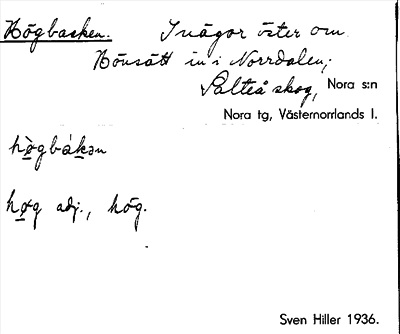 Högbacken. Tvågor öster om
Hönsätt in i Norrdalen,
Salteå skog, Nora s:n
Nora tg, Västernorrlands l.
hògbákən
høg adj., hög.
Sven Hiller 1936.